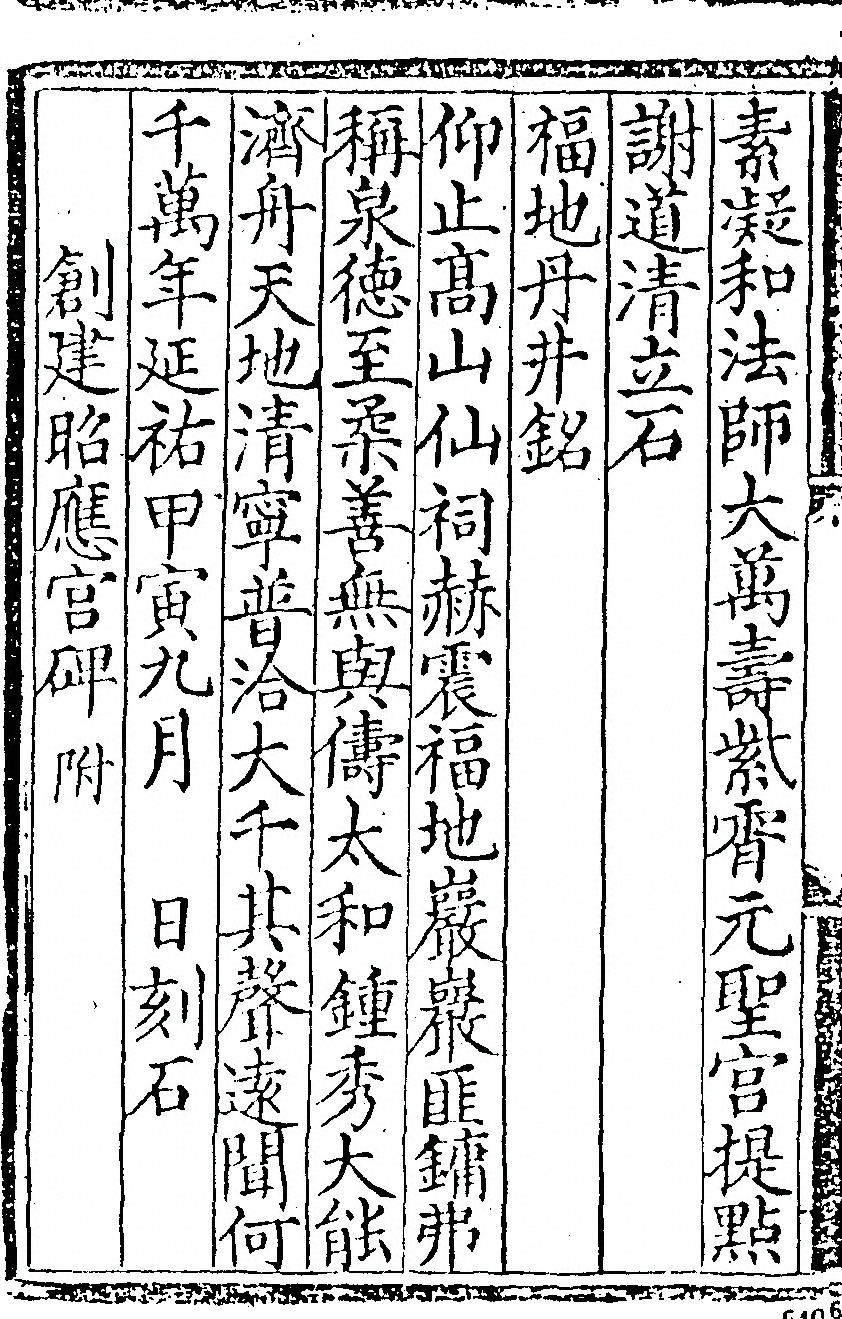 素凝和法師大萬壽紫霄元聖宫提點
謝道清立石
福地丹井銘
仰止髙山仙祠赫震福地巖巖匪鏞弗
稱泉德至柔善無與儔太和鍾秀大能
濟舟天地清寧普洽大千其聲遠聞何
千萬年延祐甲寅九月　日刻石
創建昭應宫碑附